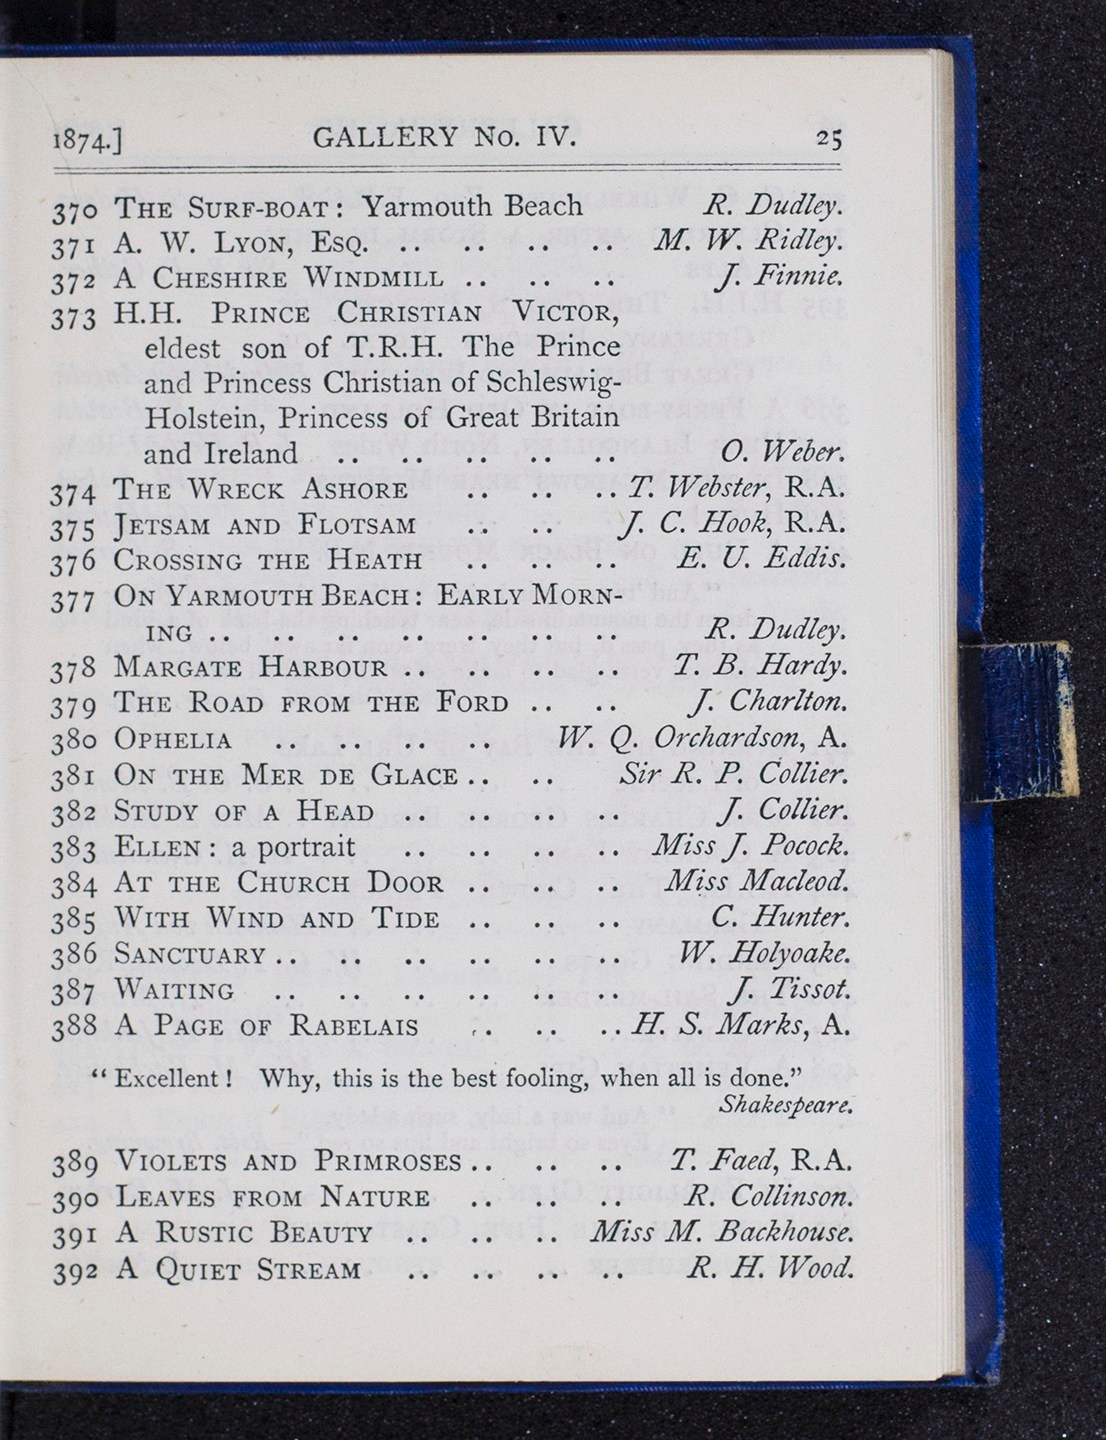 1874.] GALLERY No. IV. 25
370 THE SURF-BOAT: Yarmouth Beach R. Dudley.
371 A. W. LYON, ESQ. .. .. .. .. M. W. Ridley.
372 A CHESHIRE WINDMILL .. .. .. J. Finnie.
373 H.H. PRINCE CHRISTIAN VICTOR,
eldest son of T.R.H. The Prince
and Princess Christian of Schleswig-
Holstein, Princess of Great Britain
and Ireland .. .. .. .. .. O. Weber.
374 THE WRECK ASHORE .. .. .. T. Webster, R.A.
375 JETSAM AND FLOTSAM .. .. J. C. Hook, R.A.
376 CROSSING THE HEATH .. .. .. E. U. Eddis.
377 ON YARMOUTH BEACH: EARLY MORN-
ING .. .. .. .. .. .. .. R. Dudley.
378 MARGATE HARBOUR .. .. .. .. T. B. Hardy.
379 THE ROAD FROM THE FORD .. .. J. Charlton.
380 OPHELIA .. .. .. .. W. Q. Orchardson, A.
381 ON THE MER DE GLACE .. .. Sir R. P. Collier.
382 STUDY OF A HEAD .. .. .. .. J. Collier.
383 ELLEN: a portrait .. .. .. .. Miss J. Pocock.
384 AT THE CHURCH DOOR .. .. .. Miss Macleod.
385 WITH WIND AND TIDE .. .. .. C. Hunter.
386 SANCTUARY .. .. .. .. .. .. W. Holyoake.
387 WAITING .. .. .. .. .. .. J. Tissot.
388 A PAGE OF RABELAIS .. .. .. H. S. Marks, A.
“Excellent! Why, this is the best fooling, when all is done.”
Shakespeare.
389 VIOLETS AND PRIMROSES .. .. .. T. Faed, R.A.
390 LEAVES FROM NATURE .. .. .. R. Collinson.
391 A RUSTIC BEAUTY .. .. .. Miss M. Backhouse.
392 A QUIET STREAM .. .. .. .. R. H. Wood.